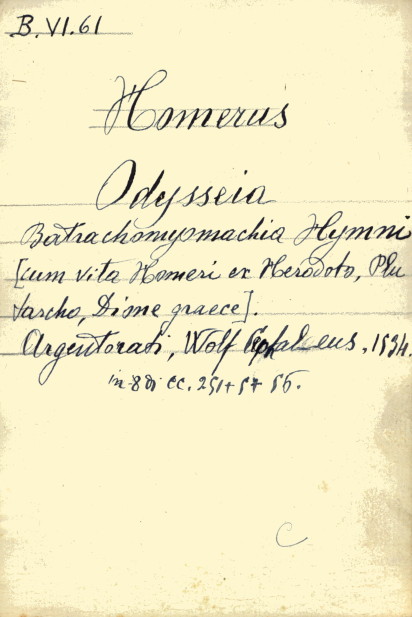 B.VI.61
Homerus
Odysseia
Batrachomyomachia Hymni
[cum vita Homeri ex Herodoto, Plu
tarcho, Dione graece].
Argentorati, Wolf Cephaleus, 1534.
in-8º cc. 251+
C